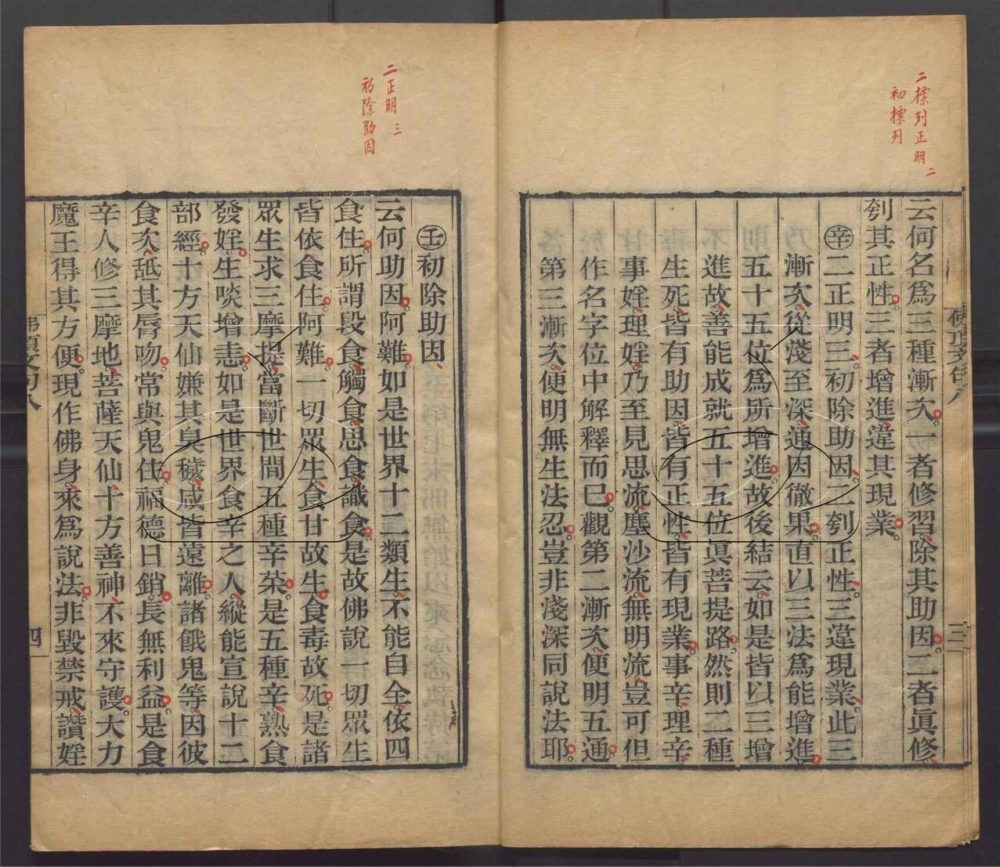 二標列正明二
初標列
云何名爲三種漸次一者修習除其助因二者眞修
刳其正性三者增進違其現業
辛二正明三初除助因二刳正性三違現業此三
漸次從淺至深通因徹果直以三法爲能增進
五十五位爲所增進故後結云如是皆以三增
進故善能成就五十五位眞菩提路然則三種
生死皆有助因皆有正性皆有現業事辛理辛
事婬理婬乃至見思流塵沙流無明流豈可但
作名字位中解釋而已觀第二漸次便明五通
第三漸次便明無生法忍豈非淺深同說法耶
三
二正明三
初除助因
壬初除助因
云何助因阿難如是世界十二類生不能自全依四
食住所謂段食觸食思食識食是故佛說一切眾生
皆依食住阿難一切眾生食甘故生食毒故死是諸
眾生求三摩提當斷世間五種辛菜是五種辛熟食
發婬生啖增恚如是世界食辛之人縱能宣說十二
部經十方天仙嫌其臭穢咸皆遠離諸餓鬼等因彼
食次舐其唇吻常與鬼住福德日銷長無利益是食
辛人修三摩地菩薩天仙十方善神不來守護大力
魔王得其方便現作佛身來爲說法非毀禁戒讚婬
四